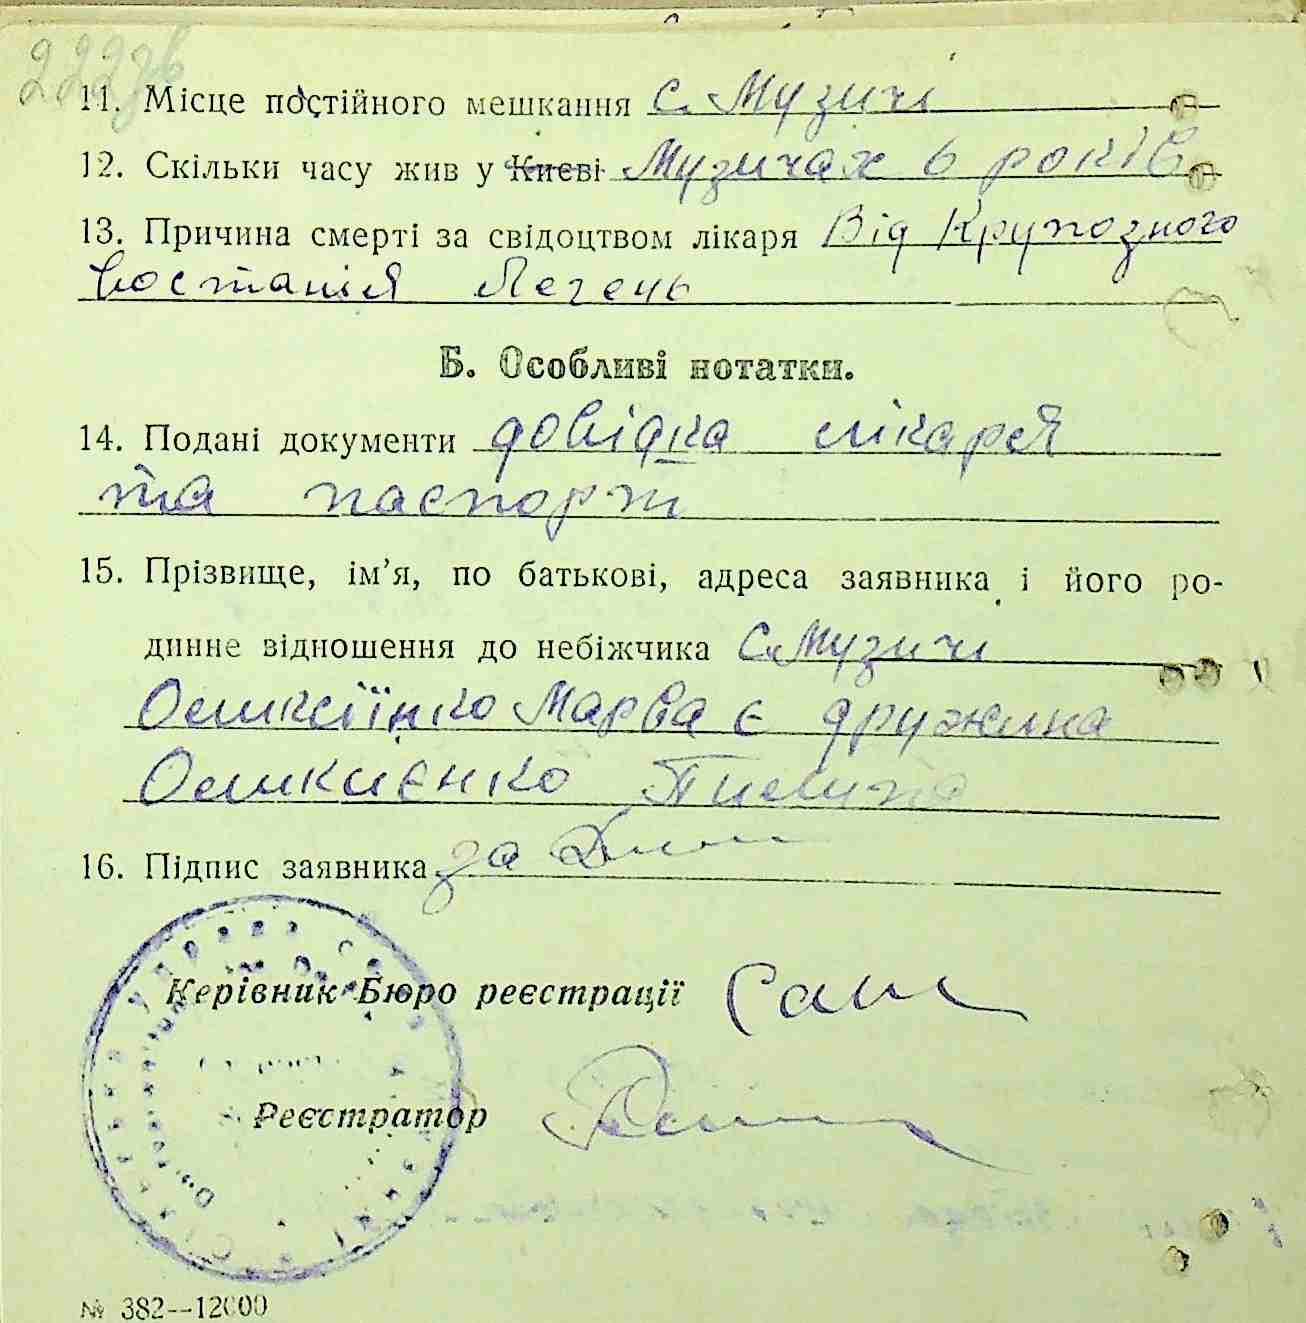 11. Місце постійного мешкання с. Музичі
12. Скільки часу жив у Києві Музичах 6 років
13. Причина смерті за свідоцтвом лікаря Від Крупозного
востанія Легень
Б. Особливі нотатки.
14. Подані документи довідка лікаря
та паспорт
15. Прізвище, ім’я, по батькові, адреса заявника і його ро-
динне відношення до небіжчика с. Музичі
Марва є дружина
16. Підпис заявника за
Керівник Бюро реєстрації
Реєстратор
№ 382--12000